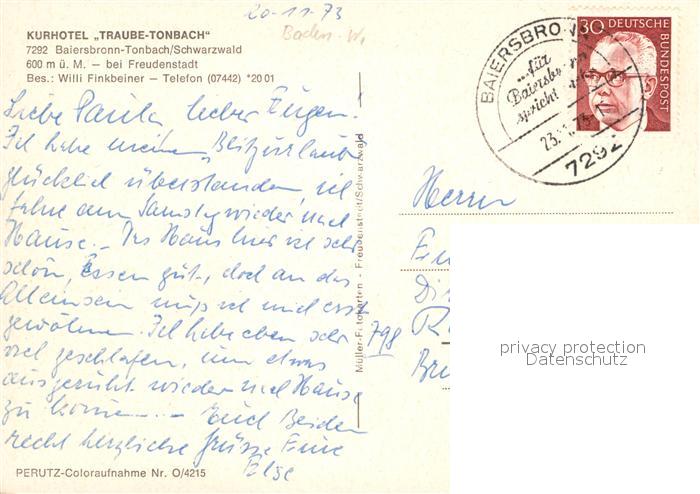 20-11-73
Baden-W.
KURHOTEL „TRAUBE-TONBACH"
7292 Baiersbronn-Tonbach/Schwarzwald
600 m ü. M. – bei Freudenstadt
Bes.: Willi Finkbeiner – Telefon (07442) *20 01
Liebe Paula, lieber Eugen!
Ich habe meinen „Blitzurlaub
glücklich überstanden, ich
fahre am Samstag wieder nach
Hause. - Das Haus hier ist sehr
schön, Essen gut, doch an das
Alleinsein muß ich mich erst
gewöhnen. Ich habe eben sehr
viel geschlafen, um etwas
ausgeruht wieder nach Hause
zu kommen. - Euch Beiden
recht herzliche Grüsse Eure
Else
PERUTZ-Coloraufnahme Nr. O/4215
Müller-Fotokarten - Freudenstadt/Schwarzwald
BAIERSBRONN
...für
Baiersbronn
spricht
23.11.73
7292
30 DEUTSCHE
BUNDESPOST
Herrn
798
privacy protection
Datenschutz